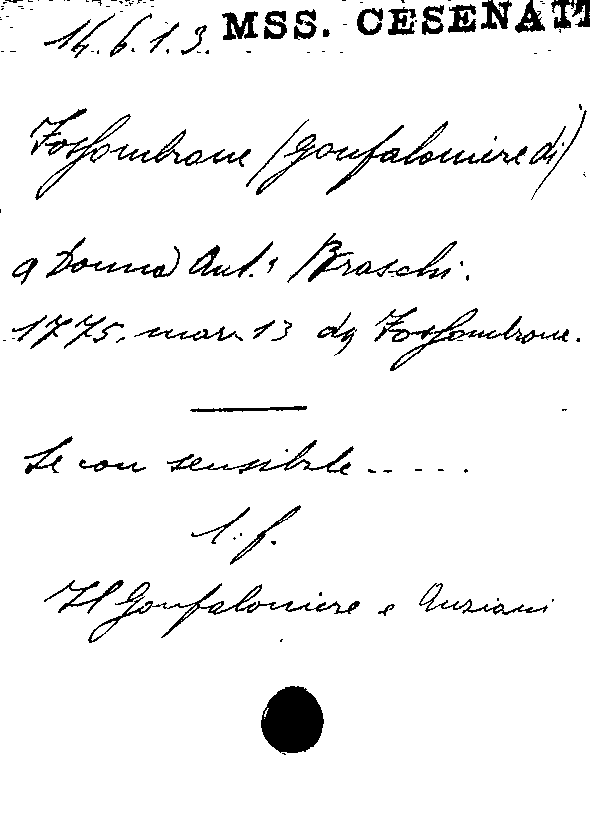 14.6.1.3. MSS. CESENATI
Fossombrone (gonfaloniere di)
a Donna Ant.ª Braschi.
1775, mar. 13 da Fossombrone.
Se con sensibile .....
l. f.
Il Gonfaloniere e Anziani